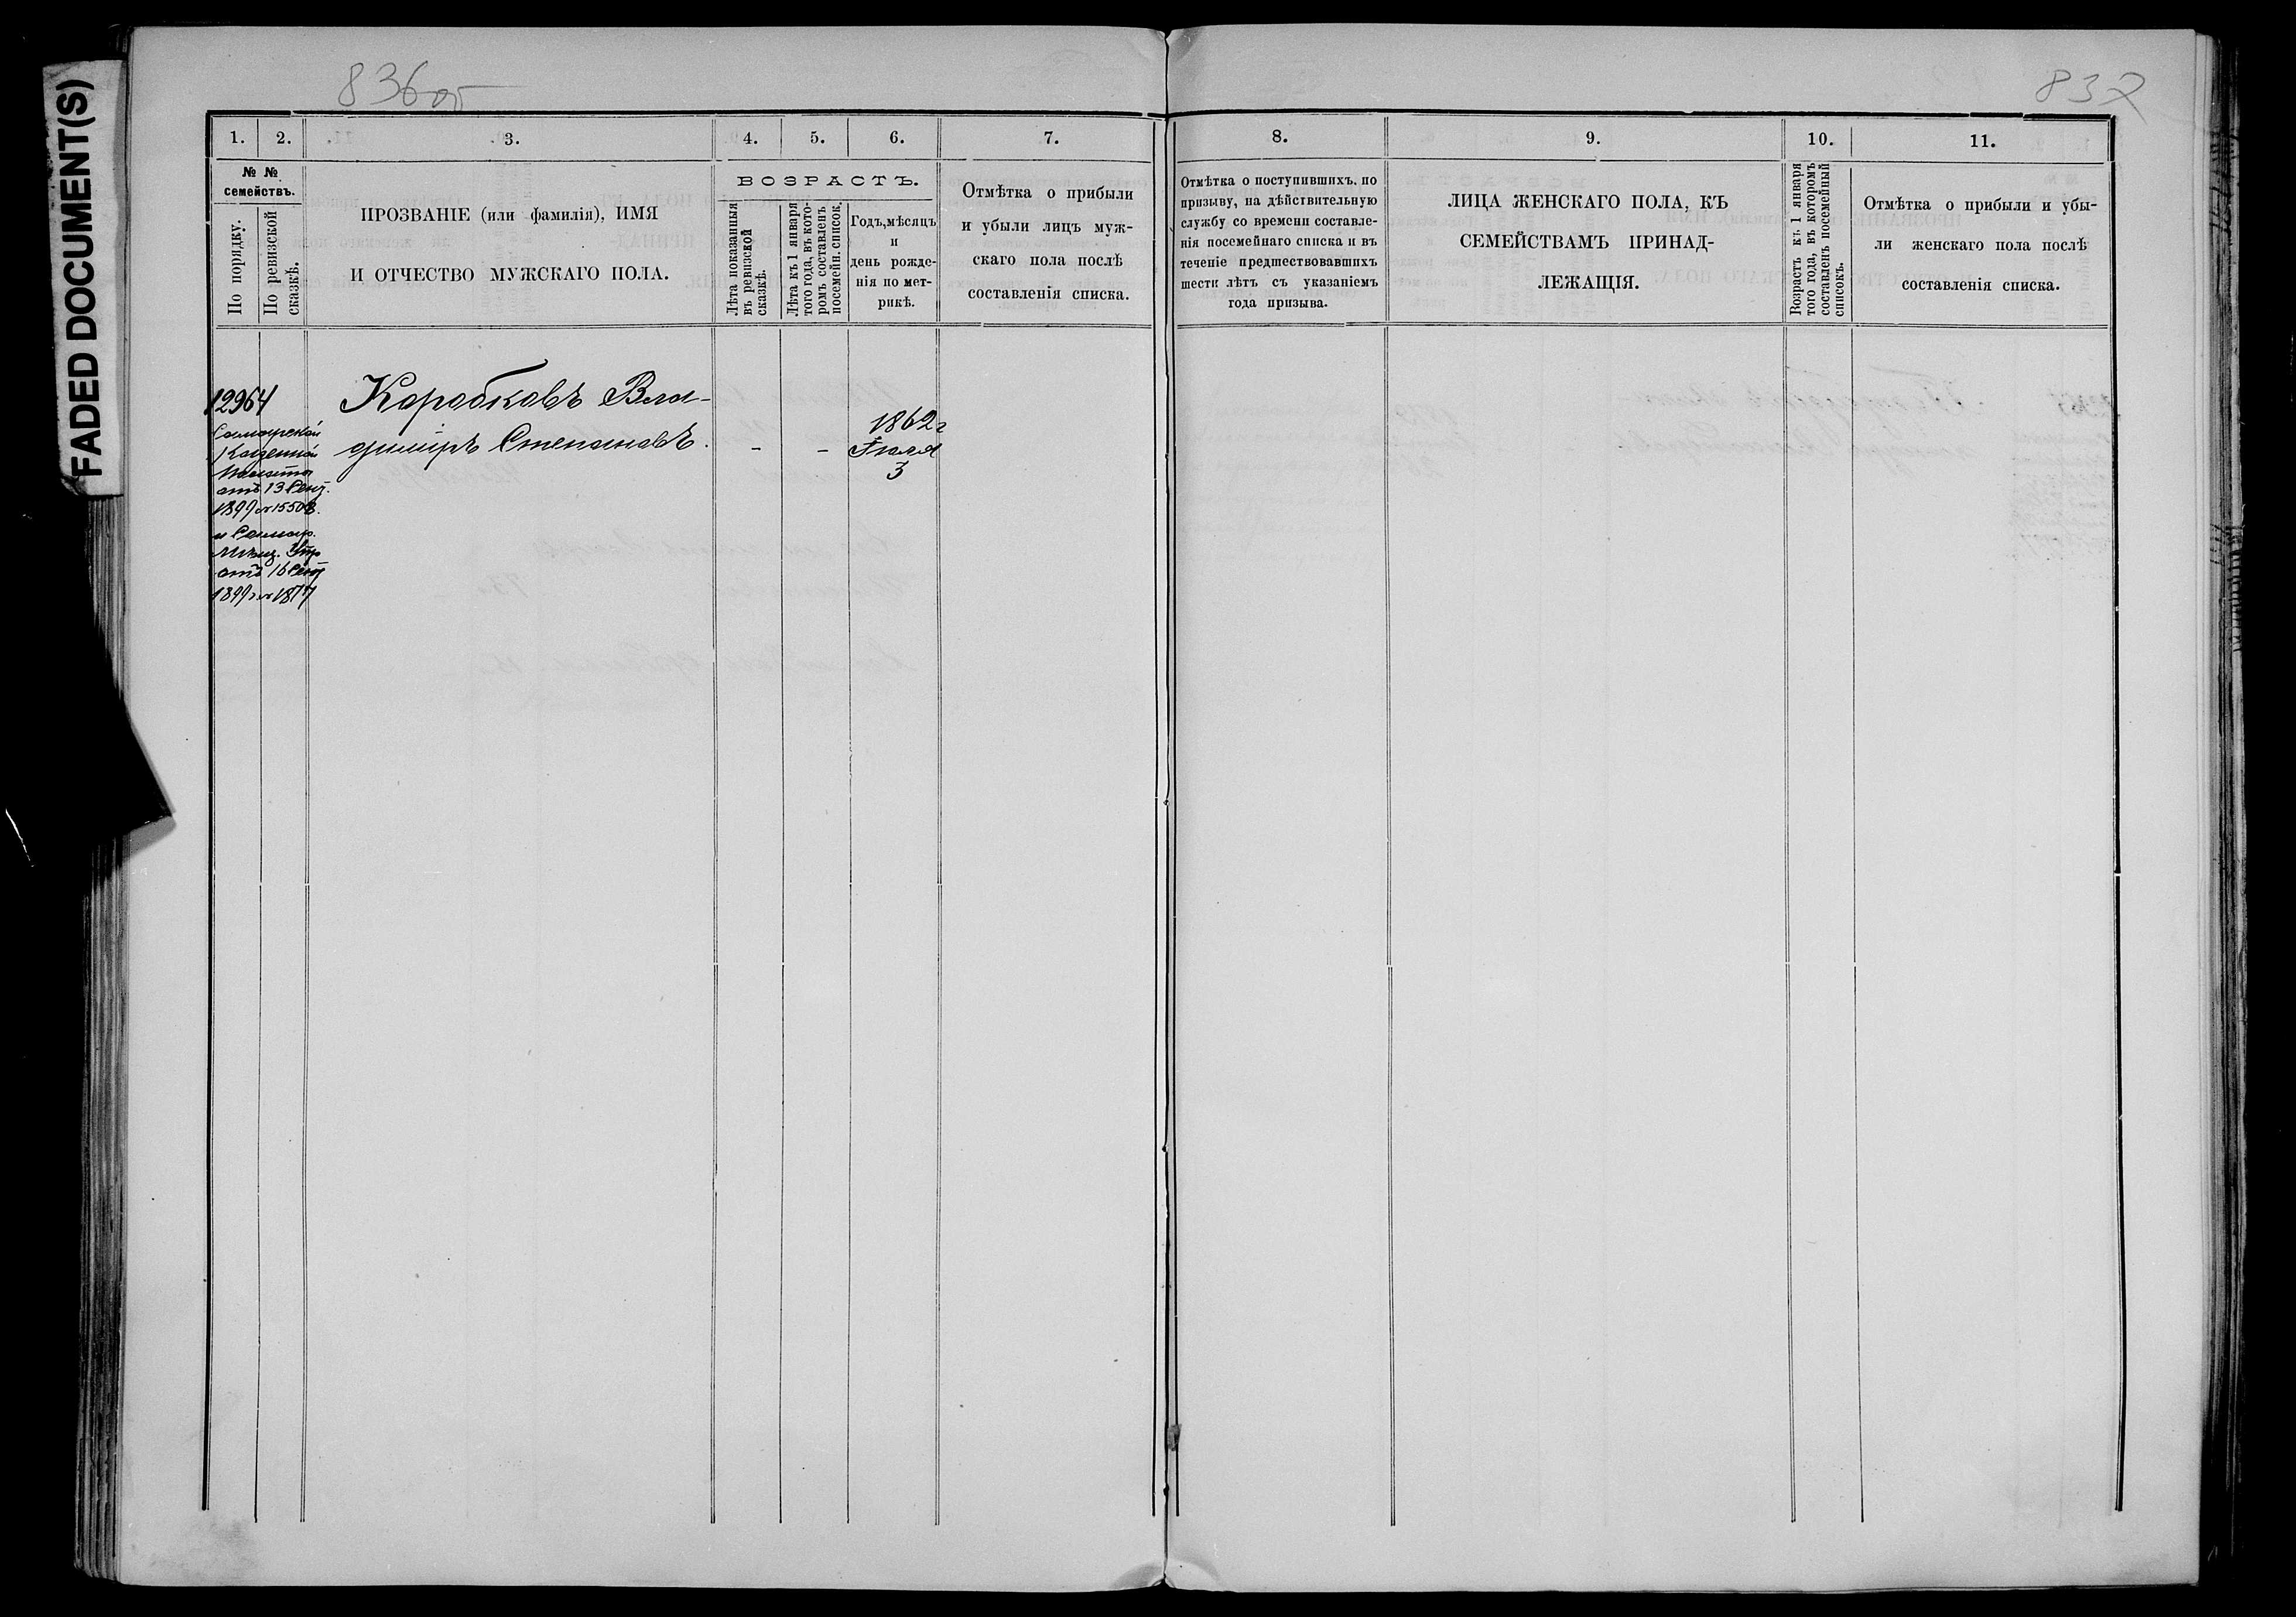 FADED DOCUMENT(S)
836об
837
1. 2. 3. 4. 5. 6. 7.
№ №
семействъ.
По порядку.
По ревизской
сказкѣ.
ПРОЗВАНІЕ (или фамилія), ИМЯ
И ОТЧЕСТВО МУЖСКАГО ПОЛА.
ВОЗРАСТЪ.
Лѣта показанныя
въ ревизской
сказкѣ.
Лѣта къ 1 января
того года, въ кото-
ромъ составленъ
посемейн. список.
Годъ, мѣсяцъ
и
день рожде-
нія по мет-
рикѣ.
Отмѣтка о прибыли
и убыли лицъ муж-
скаго пола послѣ
составленія списка.
12964
Самарской
Казенной
Палаты
отъ 13 Сент.
1899 № 15508.
и Самар.
Мѣщ. Упр
отъ 16 Сент
1899 г №
Коробковъ Вла-
диміръ Степановъ.
- -
1862 г
Іюля
3
8. 9. 10. 11.
Отмѣтка о поступившихъ, по
призыву, на дѣйствительную
службу со времени составле-
нія посемейнаго списка и въ
теченіе предшествовавшихъ
шести лѣтъ съ указаніемъ
года призыва.
ЛИЦА ЖЕНСКАГО ПОЛА, КЪ
СЕМЕЙСТВАМЪ ПРИНАД-
ЛЕЖАЩІЯ.
Возрастъ къ 1 января
того года, въ которомъ
составленъ посемейный
списокъ.
Отмѣтка о прибыли и убы-
ли женскаго пола послѣ
составленія списка.